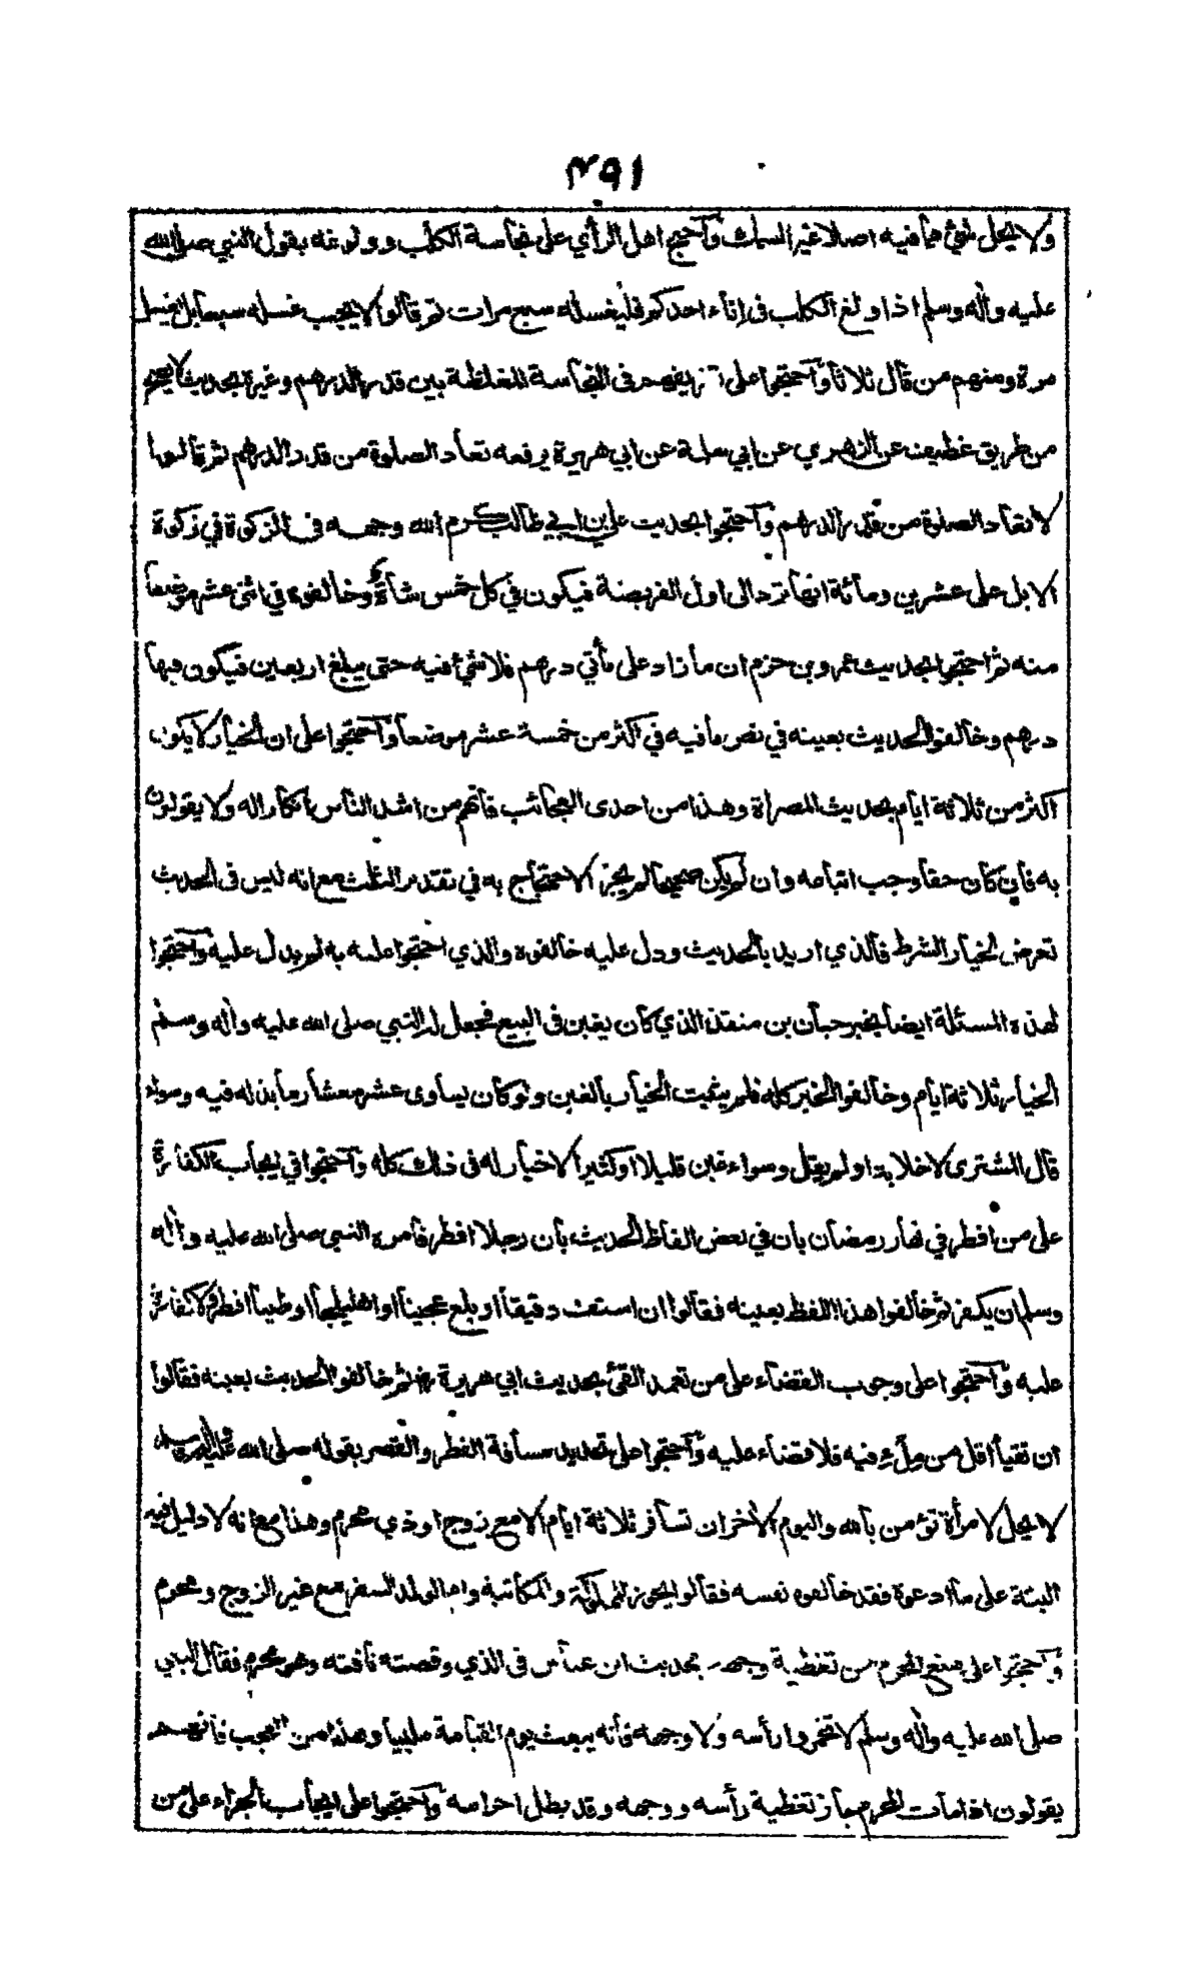 ٤٩١
ولا يحل شئ مما فيه اصلا غير السمك وآحتج اهل الرأي على نجاسة الكلب وولوغه بقول النبي صلى الله
عليه وآله وسلم اذا ولغ الكلب فى إناء احدكم فليغسله سبع مرات ثم قالوا لا يجب غسله سبعا بل يغسل
مرة ومنهم من قال ثلاثا وآحتجوا على تفريقهم فى النجاسة المغلظة بين قدر الدرهم وغيره بحديث لا يصح
من طريق غطيف عن الزهري عن ابي سلمة عن ابي هريرة يرفعه تعاد الصلوة من قدر الدرهم ثم قالوا
لا تعاد الصلوة من قدر الدرهم وآحتجوا بحديث علي بن ابي طالب كرم الله وجهه فى الزكوة في زكوة
الابل على عشرين ومائة انها ترد الى اول الفريضة فيكون في كل خمس شاة وخالفوه في اثنى عشر موضعا
منه ثم احتجوا بحديث عمرو بن حزم ان ما زاد على مأتي درهم فلا شئ فيه حتى يبلغ اربعين فيكون فيها
درهم وخالفوا الحديث بعينه في نص ما فيه في اكثر من خمسة عشر موضعا وآحتجوا على ان الخيار لا يكون
اكثر من ثلاثة ايام بحديث المصراة وهذا من احدى العجائب فانهم من اشد الناس انكارا له ولا يقولون
به فان كان حقا وجب اتباعه وان لم يكن صحيحا لم يجز الاحتجاج به في تقدير الثلث مع انه ليس فى الحديث
تعرض لخيار الشرط فالذي اريد بالحديث ودل عليه خالفوه والذي احتجوا عليه به لم يدل عليه وآحتجوا
لهذه المسئلة ايضا بخبر حبان بن منقذ الذي كان يغبن فى البيع فجعل له النبي صلى الله عليه وآله وسلم
الخيار ثلاثة ايام وخالفوا الخبر كله فلم يثبت الخيار بالغبن ولو كان يساوى عشر معشار ما بذله فيه وسواء
قال المشترى لا خلابة او لم يقل وسواء غبن قليلا او كثيرا لا خيار له فى ذلك كله وآحتجوا في ايجاب الكفارة
على من افطر في نهار رمضان بان في بعض الفاظ الحديث بان رجلا افطر فامره النبي صلى الله عليه وآله
وسلم ان يكفر ثم خالفوا هذا اللفظ بعينه فقالوا ان استف دقيقا او بلع عجينا او اهليلجا او طيبا افطر ولا كفارة
عليه وآحتجوا على وجوب القضاء على من تعمد القئ بحديث ابي هريرة رض ثم خالفوا الحديث بعينه فقالوا
ان تقيأ اقل من ملء فيه فلا قضاء عليه وآحتجوا على تحديد مسافة الفطر والقصر بقوله صلى الله عليه وآله وسلم
لا يحل لامرأة تؤمن بالله واليوم الآخر ان تسافر ثلاثة ايام الا مع زوج او ذي محرم وهذا مع انه لا دليل فيه
البتة على ما ادعوه فقد خالفوه نفسه فقالوا يجوز للمملوكة والمكاتبة وام الولد السفر مع غير الزوج ومحرم
وآحتجوا على منع المحرم من تغطية وجهه بحديث ابن عباس فى الذي وقصته ناقته وهو محرم فقال النبي
صلى الله عليه وآله وسلم لا تخمروا رأسه ولا وجهه فانه يبعث يوم القيامة ملبيا وهذا من العجب فانهم
يقولون اذا مات المحرم جاز تغطية رأسه ووجهه وقد بطل احرامه وآحتجوا على ايجاب الجزاء على من